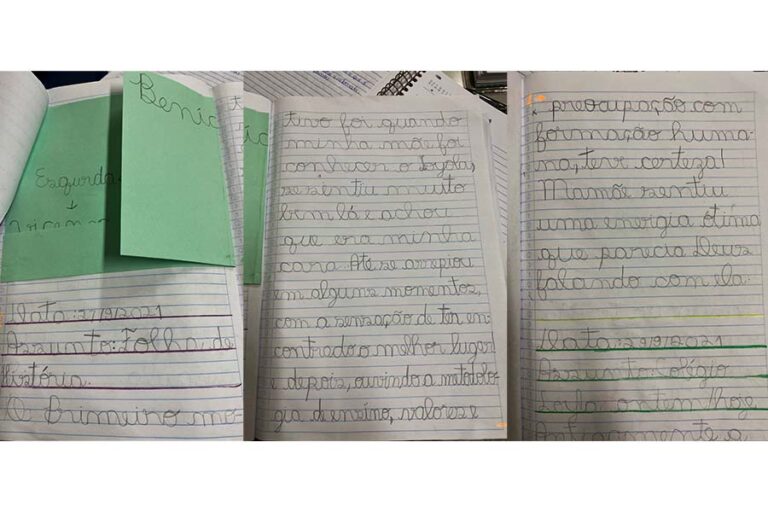 Benic
Esquerda
Data: 27/9/2021
Assunto: Folha de
História.
O Primeiro mo-
tivo foi quando
minha mãe foi
conhecer o Loyola,
se sentiu muito
bem lá e achou
que era minha
cara. Até se arrepiou
em alguns momentos,
com a sensação de ter en-
contrado o melhor lugar
e depois, ouvindo a metodolo-
gia di ensino, valores e
preocupação com
formação huma-
na, teve certeza!
Mamãe sentiu
uma energia ótima
que parecia Deus
falando com ela.
Data: 29/9/2021
Assunto: Colégio
ontem/hoje
Antigamente a